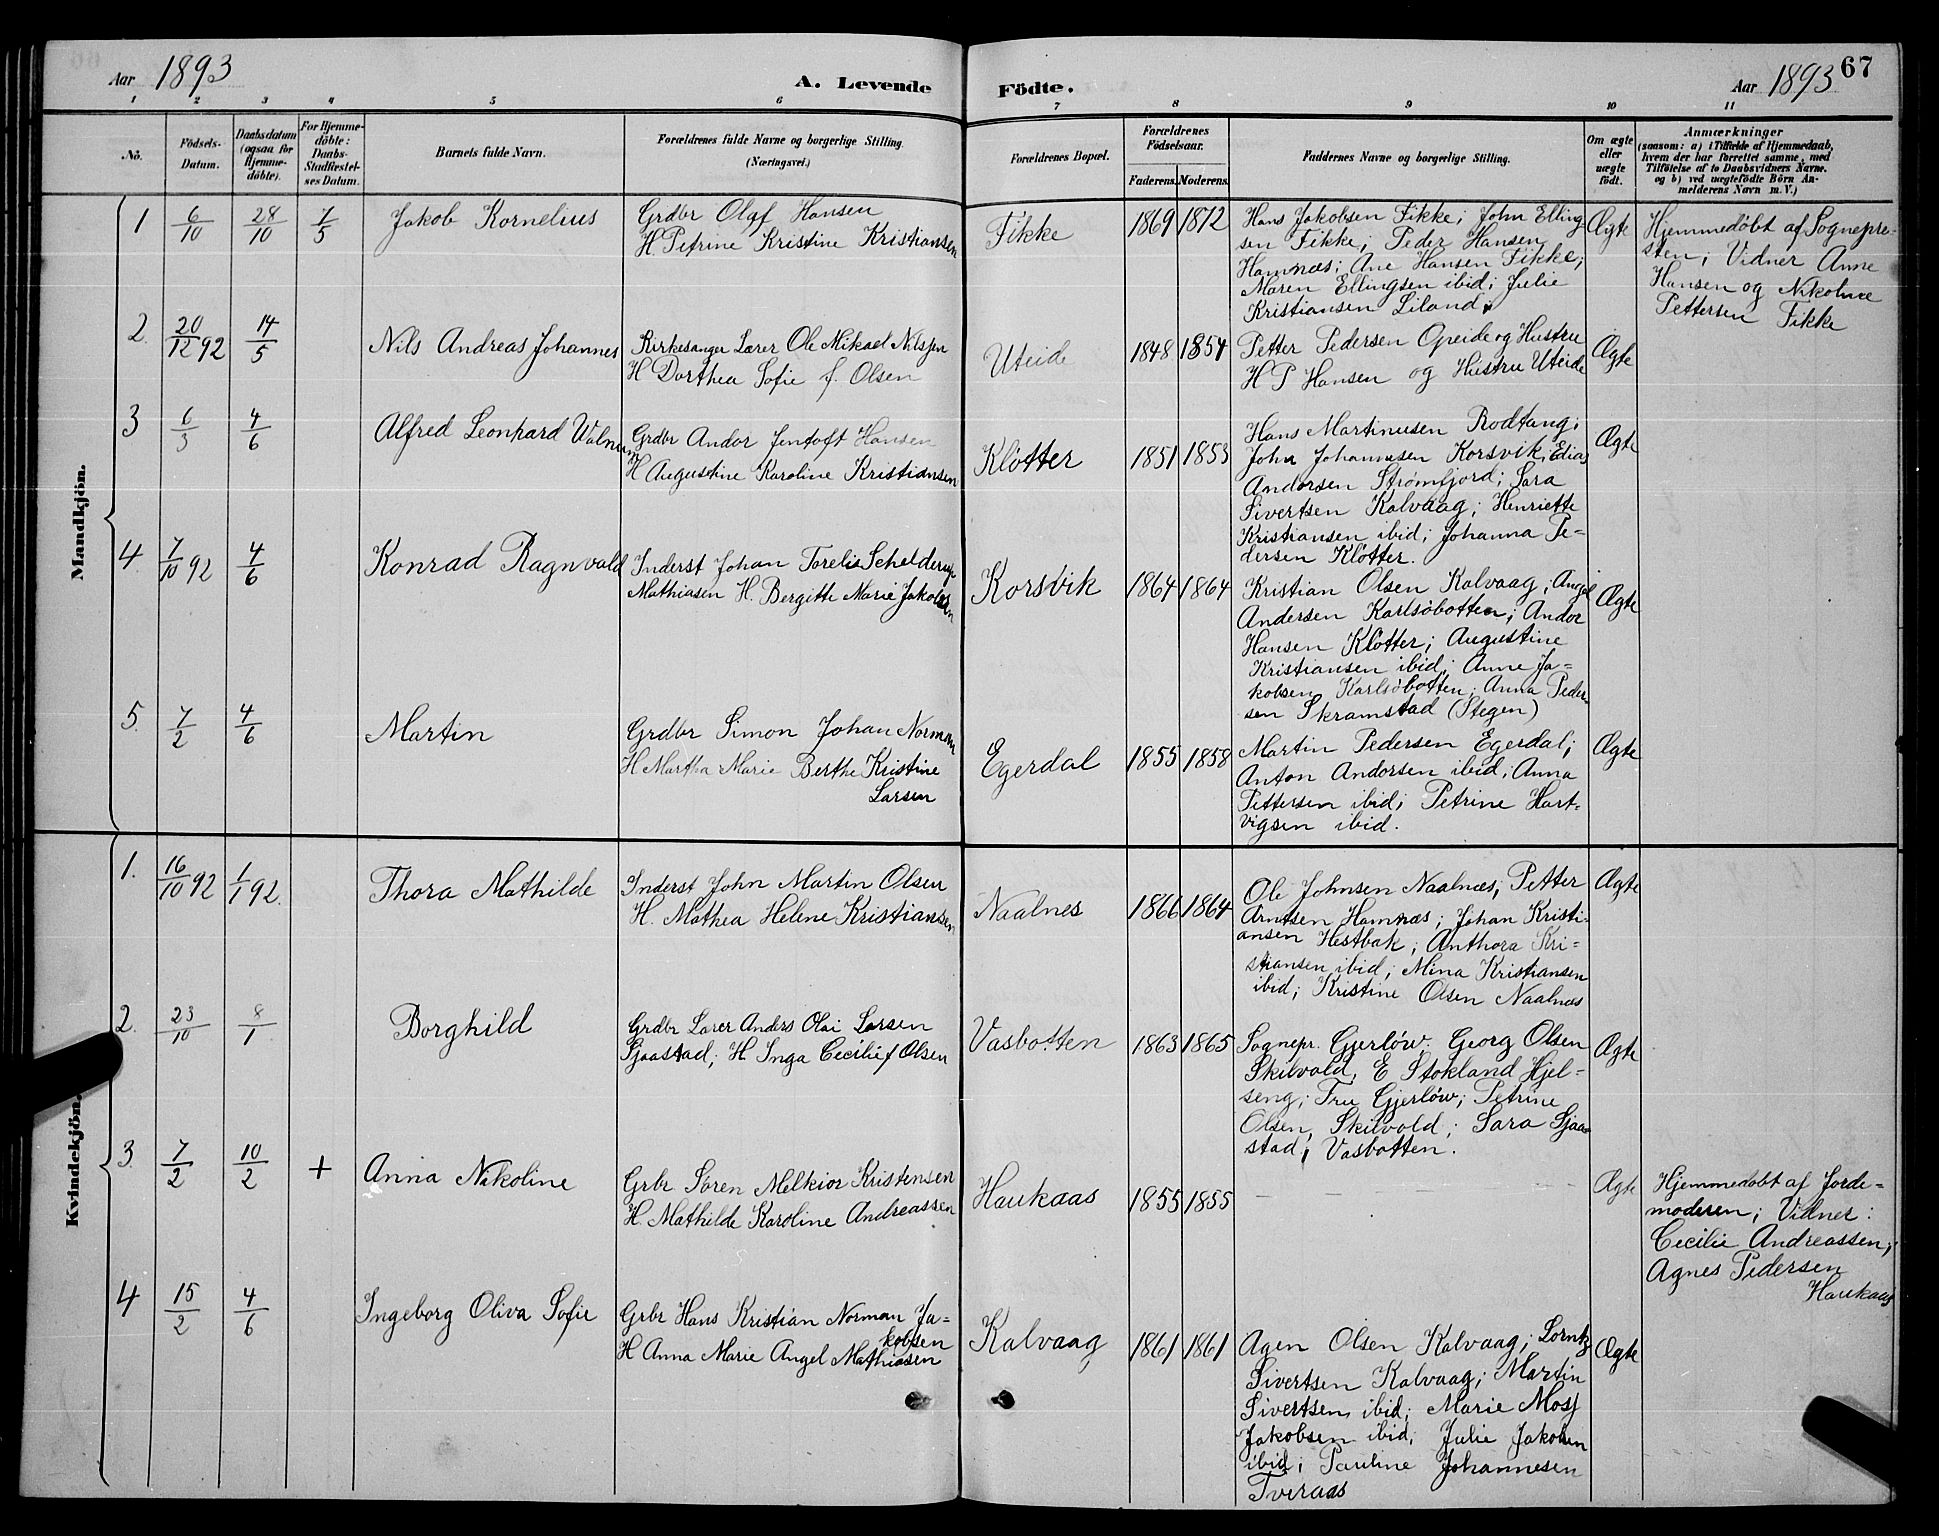 Aar 1893
A. Levende
Födte.
Aar 1893
67
1 2 3 4 5 6 7 8 9 10 11
No.
Födsels-
Datum.
Daabsdatum
(ogsaa for
Hjemme-
döbte).
For Hjemme-
döbte:
Daabs-
Stadfæstel-
ses Datum.
Barnets fulde Navn.
Forældrenes fulde Navne og borgerlige Stilling.
(Næringsvei.)
Forældrenes Bopæl.
Forældrenes
Födselsaar.
Faderens.
Moderens.
Faddernes Navne og borgerlige Stilling.
Om ægte
eller
uægte
födt.
Anmærkninger
(saasom: a) i Tilfælde af Hjemmedaab,
hvem der har forrettet samme, med
Tilföielse af to Daabsvidners Navne,
og b) ved uægtefödte Börn An-
melderens Navn m. V.)
Mandkjön.
1 6/10 28/10 7/5 Jakob Kornelius
Grdbr Olaf Hansen
H. Petrine Kristine Kristiansen
Fikke 1869 1872
Hans Jakobsen Fikke; John Elling-
sen Fikke; Peder Hansen
Hamnæs; Ane Hansen Fikke;
Maren Ellingsen ibid; Julie
Kristiansen Liland;
Ægte
Hjemmedøbt af Sognepre-
sten; Vidner Anne
Hansen og Nikoline
Pettersen Fikke
2 20/12 92 14/5 Nils Andreas Johannes
Kirkesanger Lærer Ole Mikael Nilssen
H Dorthea Sofie f. Olsen
Uteide 1848 1854
Petter Pedersen Opeide og Hustru
H P Hansen og Hustru Uteide
Ægte
3 6/3 4/6 Alfred Leonhard Valnum
Grdbr Andor Jentoft Hansen
H Augustine Karoline Kristiansen
Kløtter 1851 1853
Hans Martinusen Rodtang;
John Johannesen Korsvik; Edias
Andorsen Strømfjord; Sara
Sivertsen Kalvaag; Henriette
Kristiansen ibid; Johanna Pe-
dersen Kløtter.
Ægte
4. 7/10 92 4/6 Konrad Ragnvald
Inderst Johan Torelie Schelderup
Mathiasen H. Bergitte Marie Jakobsen
Korsvik 1864 1864
Kristian Olsen Kalvaag; Angel
Andersen Karlsøbotten; Andor
Hansen Kløtter; Augustine
Kristiansen ibid; Anne Ja-
kobsen Karlsøbotten; Anna Peder-
sen Skramstad (Stegen)
Ægte
5. 7/2 4/6 Martin
Grdbr Simon Johan Norman
H Martha Marie Berthe Kristine
Larsen
Egerdal 1855 1858
Martin Pedersen Egerdal;
Anton Andorsen ibid; Anna
Pettersen ibid; Petrine Hart-
vigsen ibid.
Ægte
Kvindekjön.
1. 16/10 92 1/1 92. Thora Mathilde
Inderst John Martin Olsen
H. Mathea Helene Kristiansen
Naalnes 1866 1864
Ole Johnsen Naalnæs; Petter
Arntsen Hamnæs; Johan Kristi-
ansen Hestbak; Anthora Kri-
stiansen ibid; Mina Kristiansen
ibid; Kristine Olsen Naalnæs
Ægte
2. 23/10 8/1 Borghild
Grdbr Lærer Anders Olai Larsen
Sjaastad; H Inga Cecilie f Olsen
Vasbotten 1863 1865
Sognepr. Gjerløw. Georg Olsen
Skilvold, E Stokland Hjel-
seng; Fru Gjerløw; Petrine
Olsen, Skilvold; Sara Sjaa-
stad; Vasbotten.
Ægte
3. 7/2 10/2 + Anna Nikoline
Grbr Søren Melkior Kristensen
H. Mathilde Karoline Andreassen
Haukaas 1855 1855
Ægte
Hjemmedøbt af Jorde-
moderen; Vidner:
Cecilie Andreassen;
Agnes Pedersen
Haukaas
4 15/2 4/6 Ingeborg Oliva Sofie
Grbr Hans Kristian Norman Ja-
kobsen
H Anna Marie Angel Mathiasen
Kalvaag 1861 1861
Agen Olsen Kalvaag; Lorntz
Sivertsen Kalvaag; Martin
Sivertsen ibid; Marie Mosj
Jakobsen ibid; Julie Jakobsen
ibid; Pauline Johannesen
Tveraas
Ægte